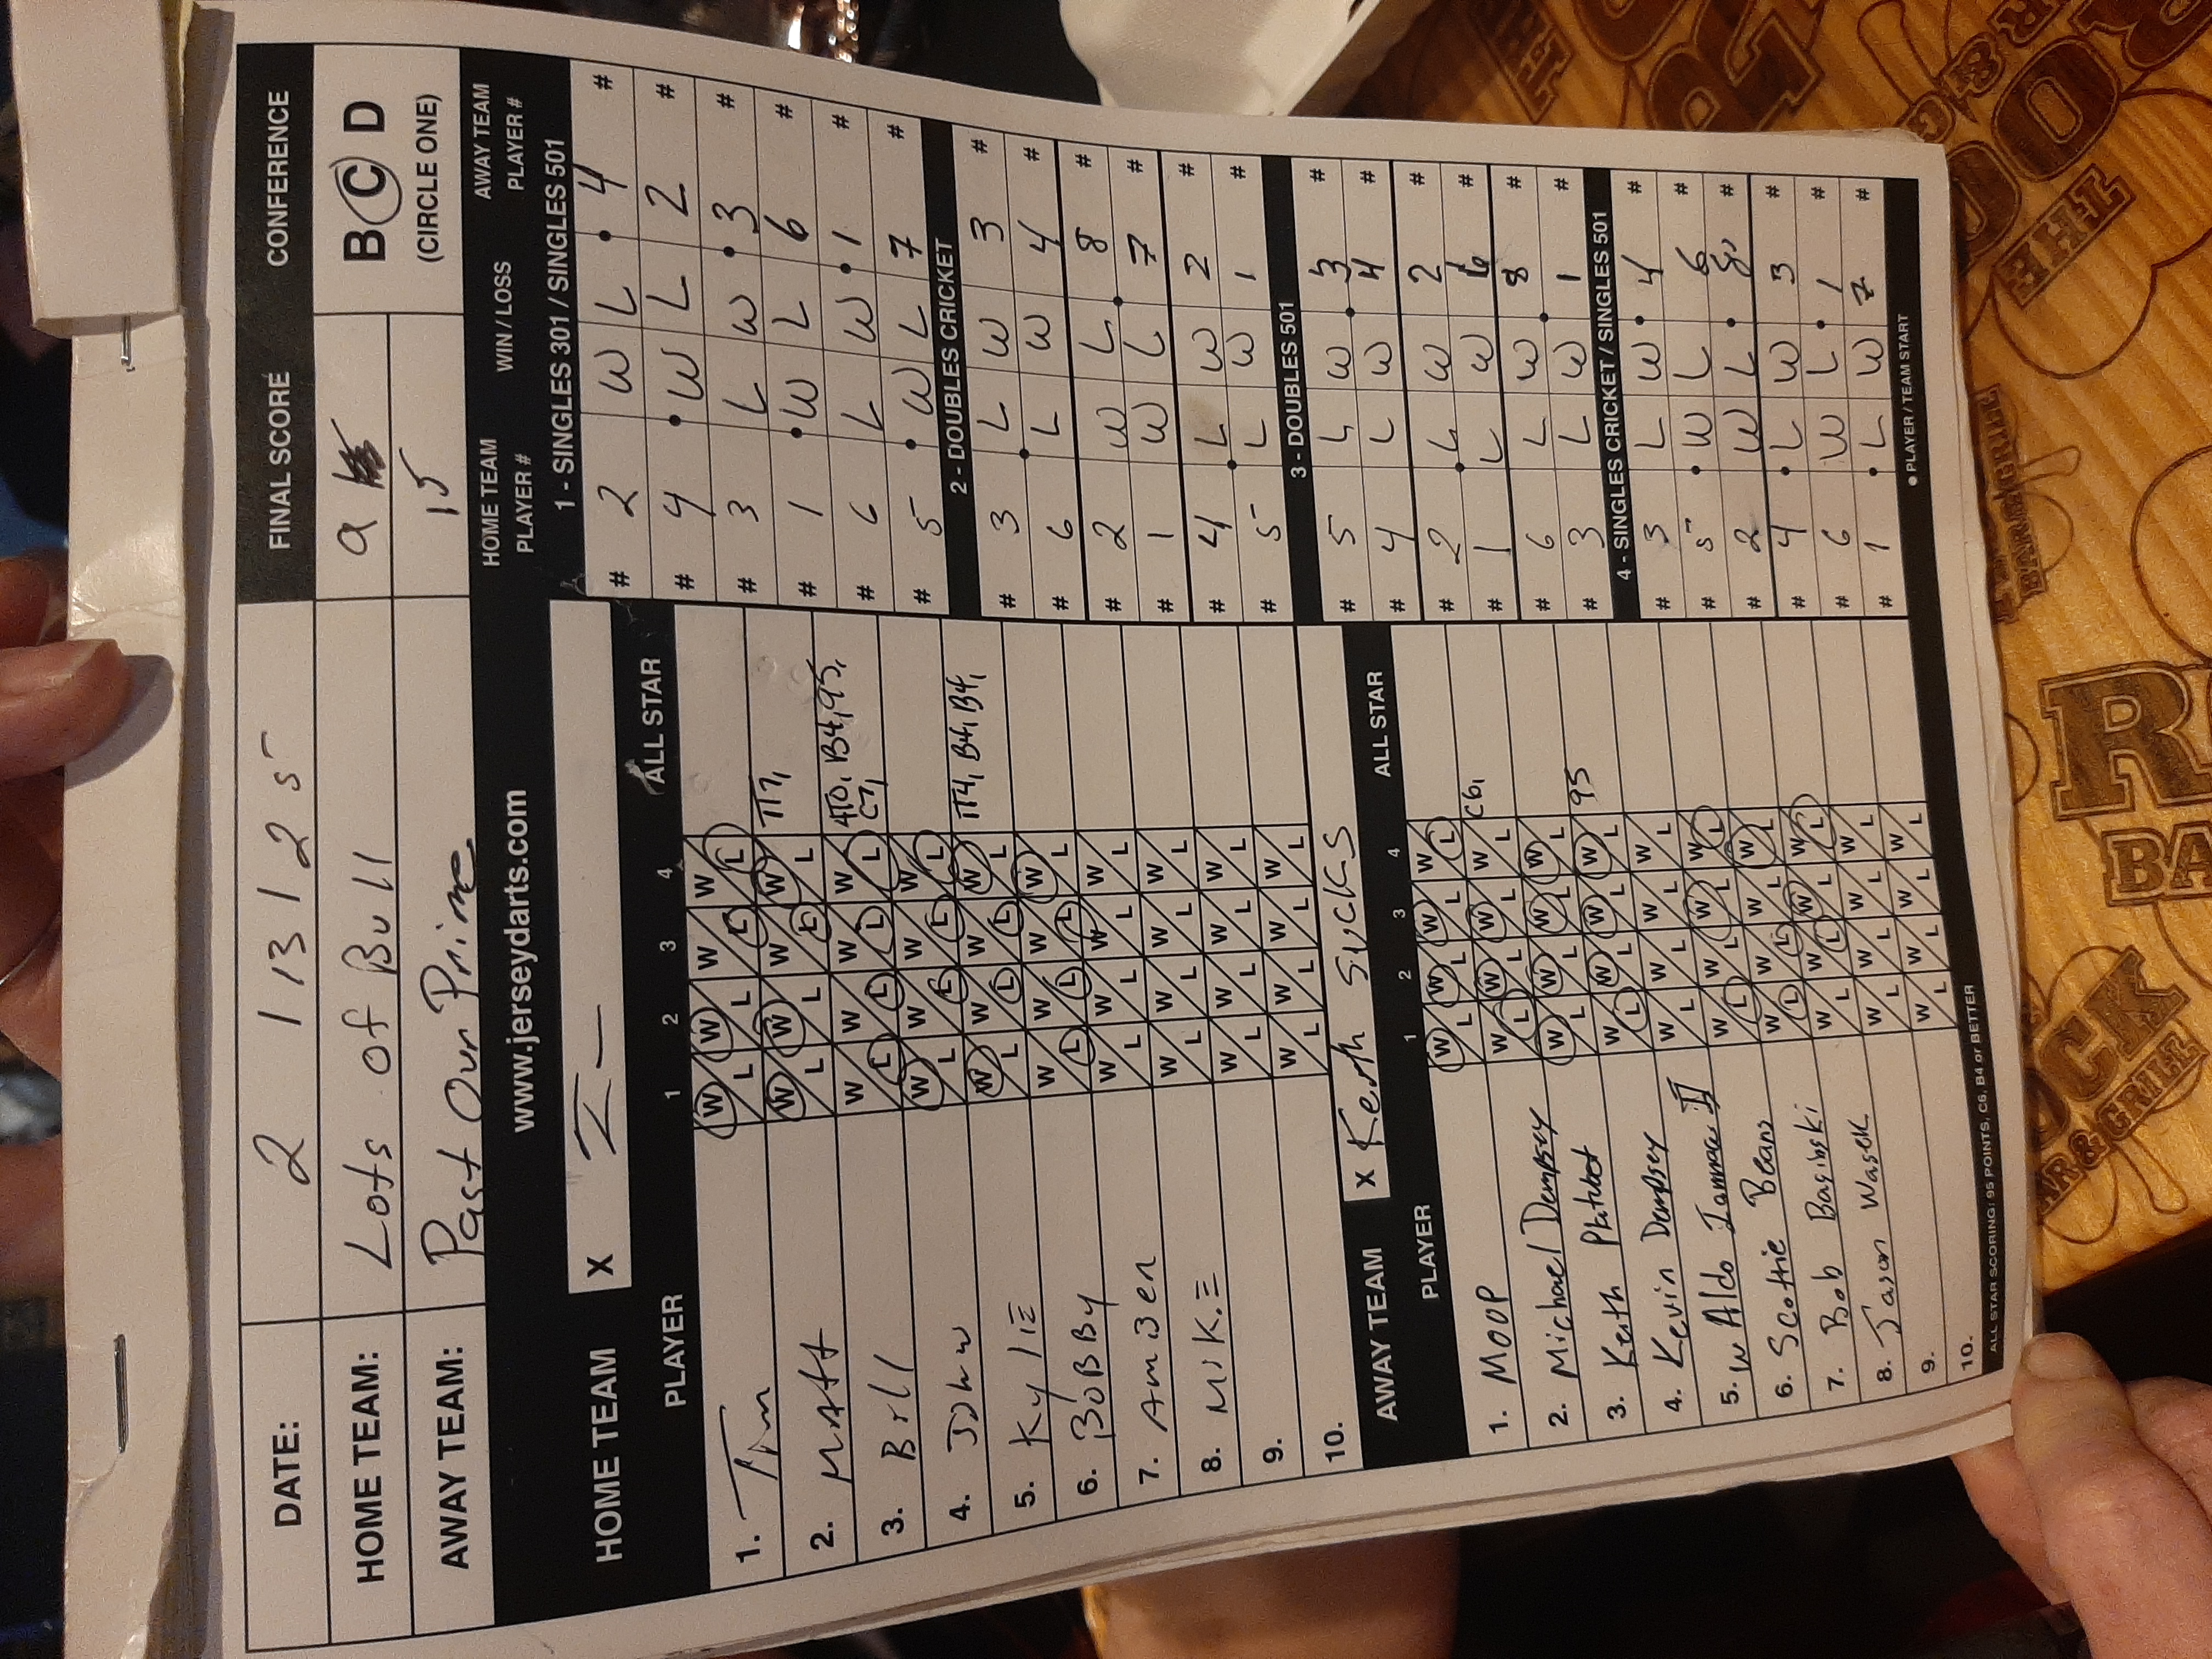 DATE: 2 13 25 FINAL SCORE CONFERENCE
HOME TEAM: Lots of Bull 9 B C D
AWAY TEAM: Past Our Prime 15 (CIRCLE ONE)
www.jerseydarts.com
HOME TEAM X
PLAYER 1 2 3 4 ALL STAR
1. Tim W L W L W L W L
2. Matt W L W L W L W L TT7,
3. Bill W L W L W L W L 4T0, B4, 95,
C7,
4. John W L W L W L W L
5. KyliE W L W L W L W L TT4, B4, B4,
6. BoBBy W L W L W L W L
7. AmBer W L W L W L W L
8. MiKE W L W L W L W L
9. W L W L W L W L
10. W L W L W L W L
AWAY TEAM X Keith SUCKS
PLAYER 1 2 3 4 ALL STAR
1. MOOP W L W L W L W L
2. Michael Dempsey W L W L W L W L C6,
3. Keith W L W L W L W L
4. Kevin Dempsey W L W L W L W L 95
5. WAldo II W L W L W L W L
6. Scottie Beans W L W L W L W L
7. Bob Baginski W L W L W L W L
8. Jason Wasek W L W L W L W L
9. W L W L W L W L
10. W L W L W L W L
ALL STAR SCORING: 95 POINTS, C6, B4 or BETTER
HOME TEAM PLAYER # WIN / LOSS AWAY TEAM PLAYER #
1 - SINGLES 301 / SINGLES 501
# 2 W L • 4 #
# 4 • W L 2 #
# 3 L W • 3 #
# 1 • W L 6 #
# 6 L W • 1 #
# 5 • W L 7 #
2 - DOUBLES CRICKET
# 3 L W 3 #
# 6 • L W 4 #
# 2 W L 8 #
# 1 W L • 7 #
# 4 L W 2 #
# 5 • L W 1 #
3 - DOUBLES 501
# 5 L W 3 #
# 4 L W • 4 #
# 2 L W 2 #
# 1 • L W 6 #
# 6 L W 8 #
# 3 L W • 1 #
4 - SINGLES CRICKET / SINGLES 501
# 3 L W • 4 #
# 5 • W L 6 #
# 2 W L • 8 #
# 4 • L W 3 #
# 6 W L • 1 #
# 1 • L W 7 #
• PLAYER / TEAM START
THE
BAR & GRILL